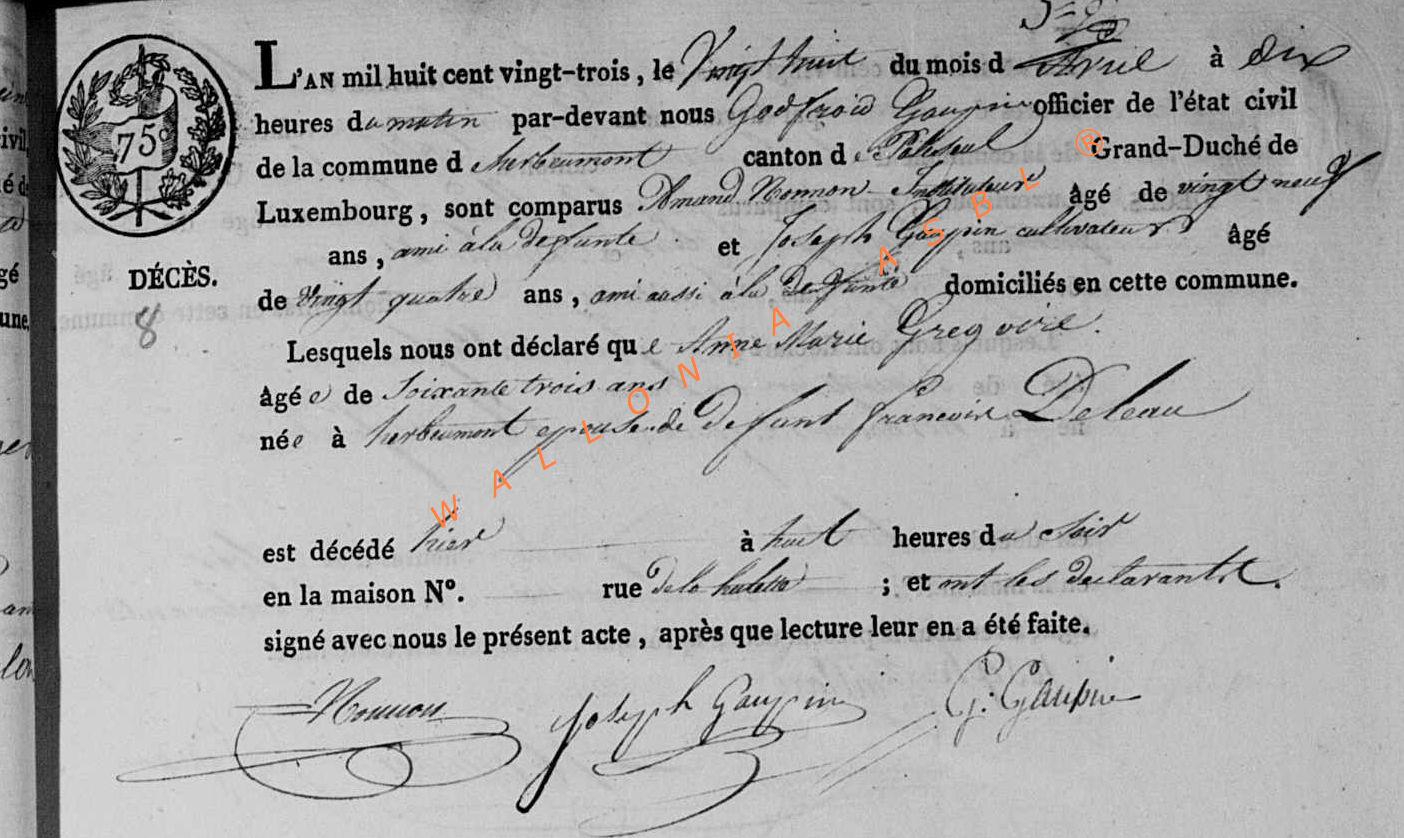 L'AN mil huit cent vingt-trois, le Vingt huit du mois d'Avril à dix
heures du matin par-devant nous Godfroid Gaupin officier de l'état civil
75c
de la commune d herbeumont canton de Paliseul Grand-Duché de
Luxembourg, sont comparus Amand Nonnon Instituteur âgé de vingt neuf
ans, ami à la defunte et Joseph Gaupin cultivateur âgé
DÉCÈS.
de vingt quatre ans, ami aussi à la defunte domiciliés en cette commune.
8
Lesquels nous ont déclaré que Anne Marie Gregoire.
âgée de Soixante trois ans
née à herbeumont epouse de defunt francois Deleau
est décédé hier à huit heures du soir
en la maison N°. rue de la ; et ont les declarants
signé avec nous le présent acte, après que lecture leur en a été faite.
Nonnon Joseph Gaupin G. Gaupin
WALLONIA ASBL ®